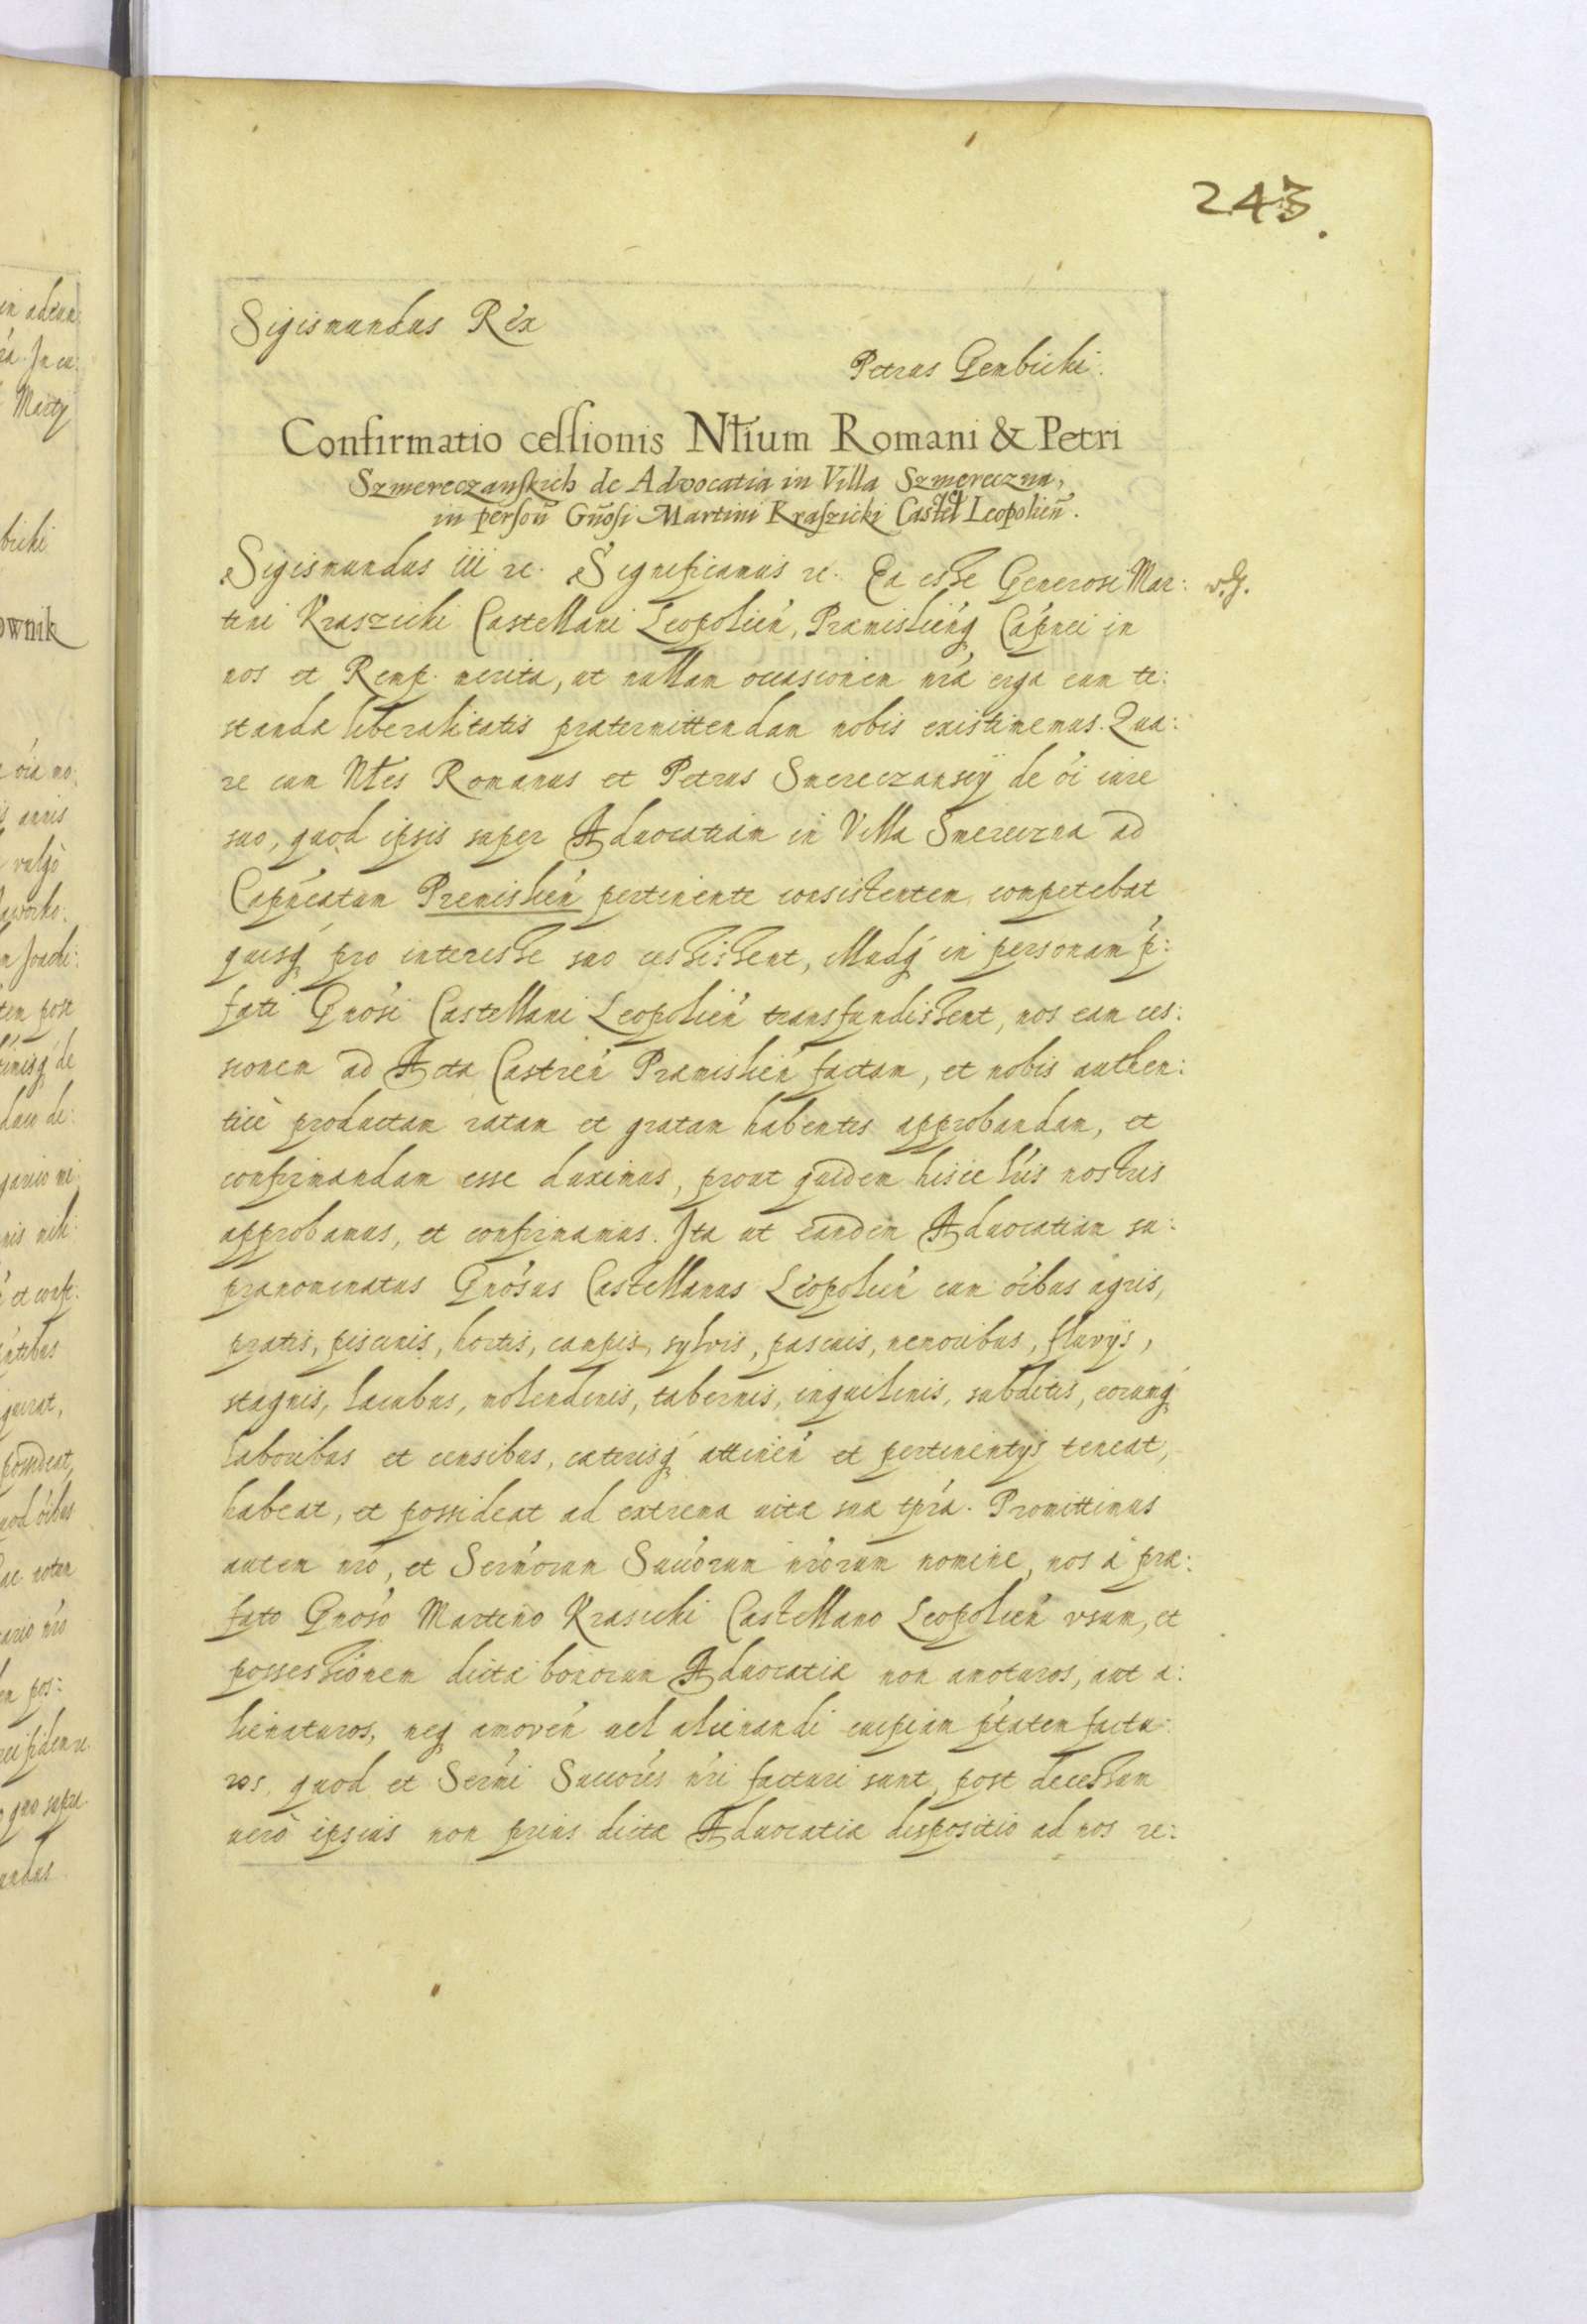 243.
Sigismundus Rex
Petrus Gembicki.
Confirmatio cessionis Nt̃ium Romani & Petri
Szmereczanskich de Advocatia in Villa Szmereczna,
in persoñ Gñosi Martini Kraszicki Castel Leopolien̄.
Sigismundus iii rc. Significamus rc. Ea esse Generosi Mar:
tini Kraszicki Castellani Leopolien̄, Præmislien̄q Capnei in
nos et Remp. merita, ut nullam occasionem nrã erga eum te:
standæ liberalitatis prætermittendam nobis existimemus. Qua:
re cum Nt̃les Romanus et Petrus Smereczanscij de oĩ iure
suo, quod ipsis super Aduocatiam in Villa Smereczna ad
Capneatum Premislien̄ pertinente consistentem, competebat
quisq pro interesse suo cessissent, illudq in personam p:
fati Gnosi Castellani Leopolien̄ transfundissent, nos eam ces:
sionem ad Acta Castren̄ Præmislien̄ factam, et nobis authen:
ticè productam ratam et gratam habentes approbandam, et
confirmandam esse duximus, prout quidem hisce lr̃is nostris
approbamus, et confirmamus. Ita ut eandem Aduocatiam su:
pranominatus Gnosus Castellanus Leopolien̄ cum oĩbus agris,
pratis, piscinis, hortis, campis, sylvis, pascuis, nemoribus, fluvijs,
stagnis, lacubus, molendinis, tabernis, inquilinis, subditis, eorumq
laboribus et censibus, cæterisq attinen̄ et pertinentijs teneat,
habeat, et possideat ad extrema uitæ suæ tp̃ra. Promittimus
autem nro, et Serñorum Succõrum nrõrum nomine, nos à præ:
fato Gnoso Martino Krasicki Castellano Leopolien̄ vsum, et
possessionem dictæ bonorum Aduocatiæ non amoturos, aut a:
lienaturos, neq amoven̄ uel alienandi cuipiam ptãtem factu:
ros. quod et Serñi Succorẽs nrĩ facturi sunt, post decessum
uerò ipsius non prius dictæ Aduocatiæ dispositio ad nos re: